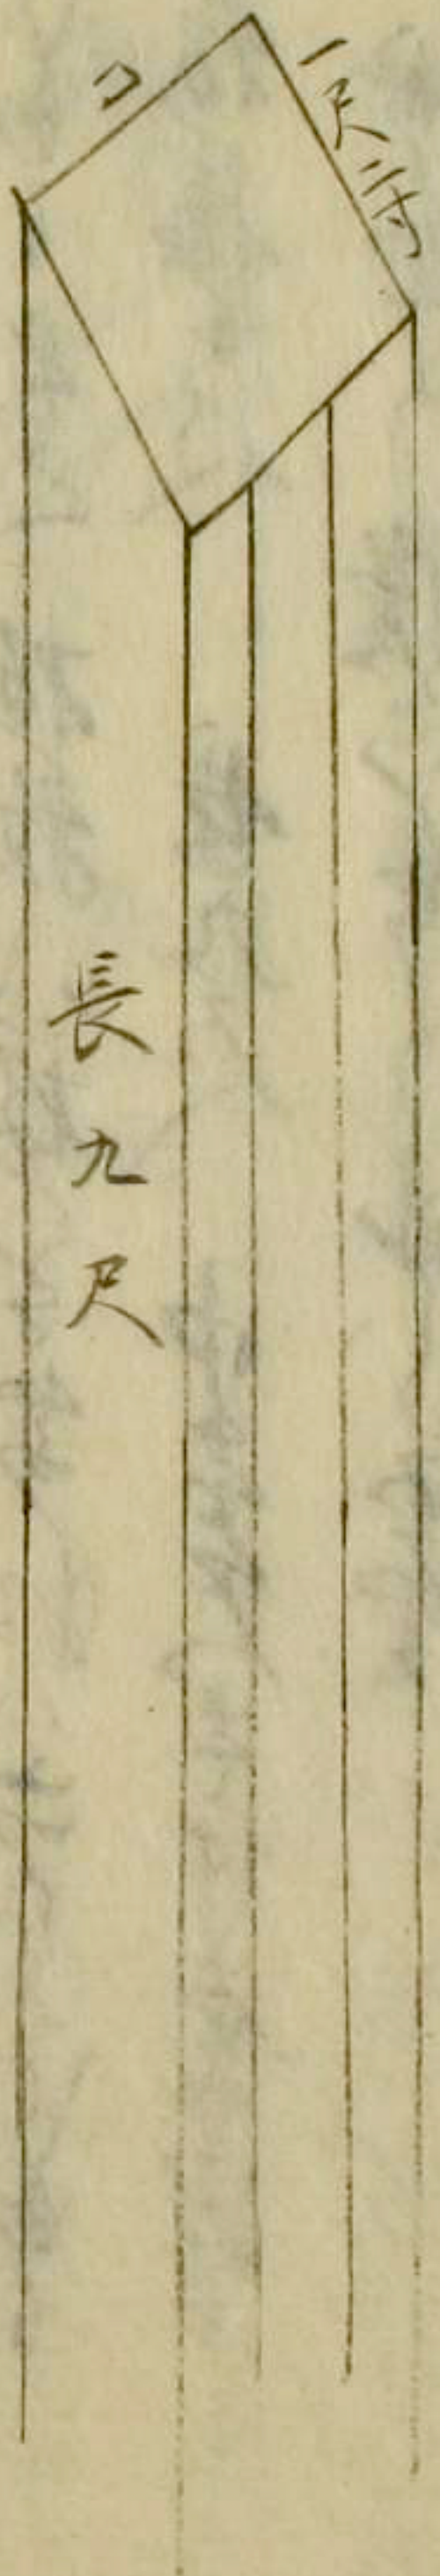 一尺二寸
長九尺